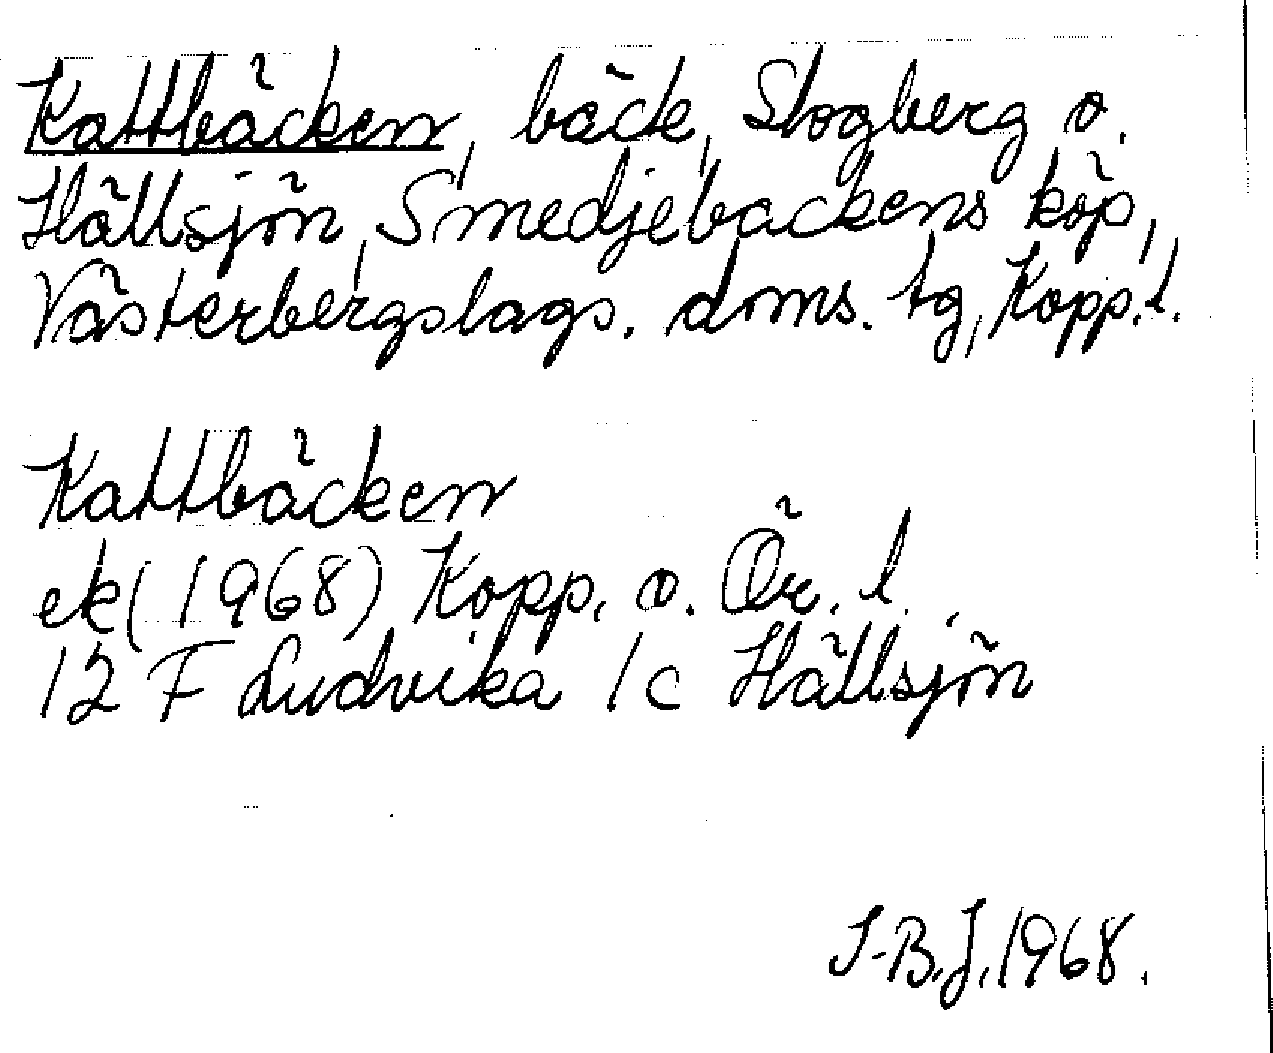 Kattbäcken, bäck, Slogberg o.
Hällsjön, Smedjebackens köp,
Västerbergslags. doms. tg, Kopp.l.
Kattbäcken
ek(1968) Kopp. o. Ör. l.
12 F Ludvika 1c Hällsjön
I-B.J. 1968.